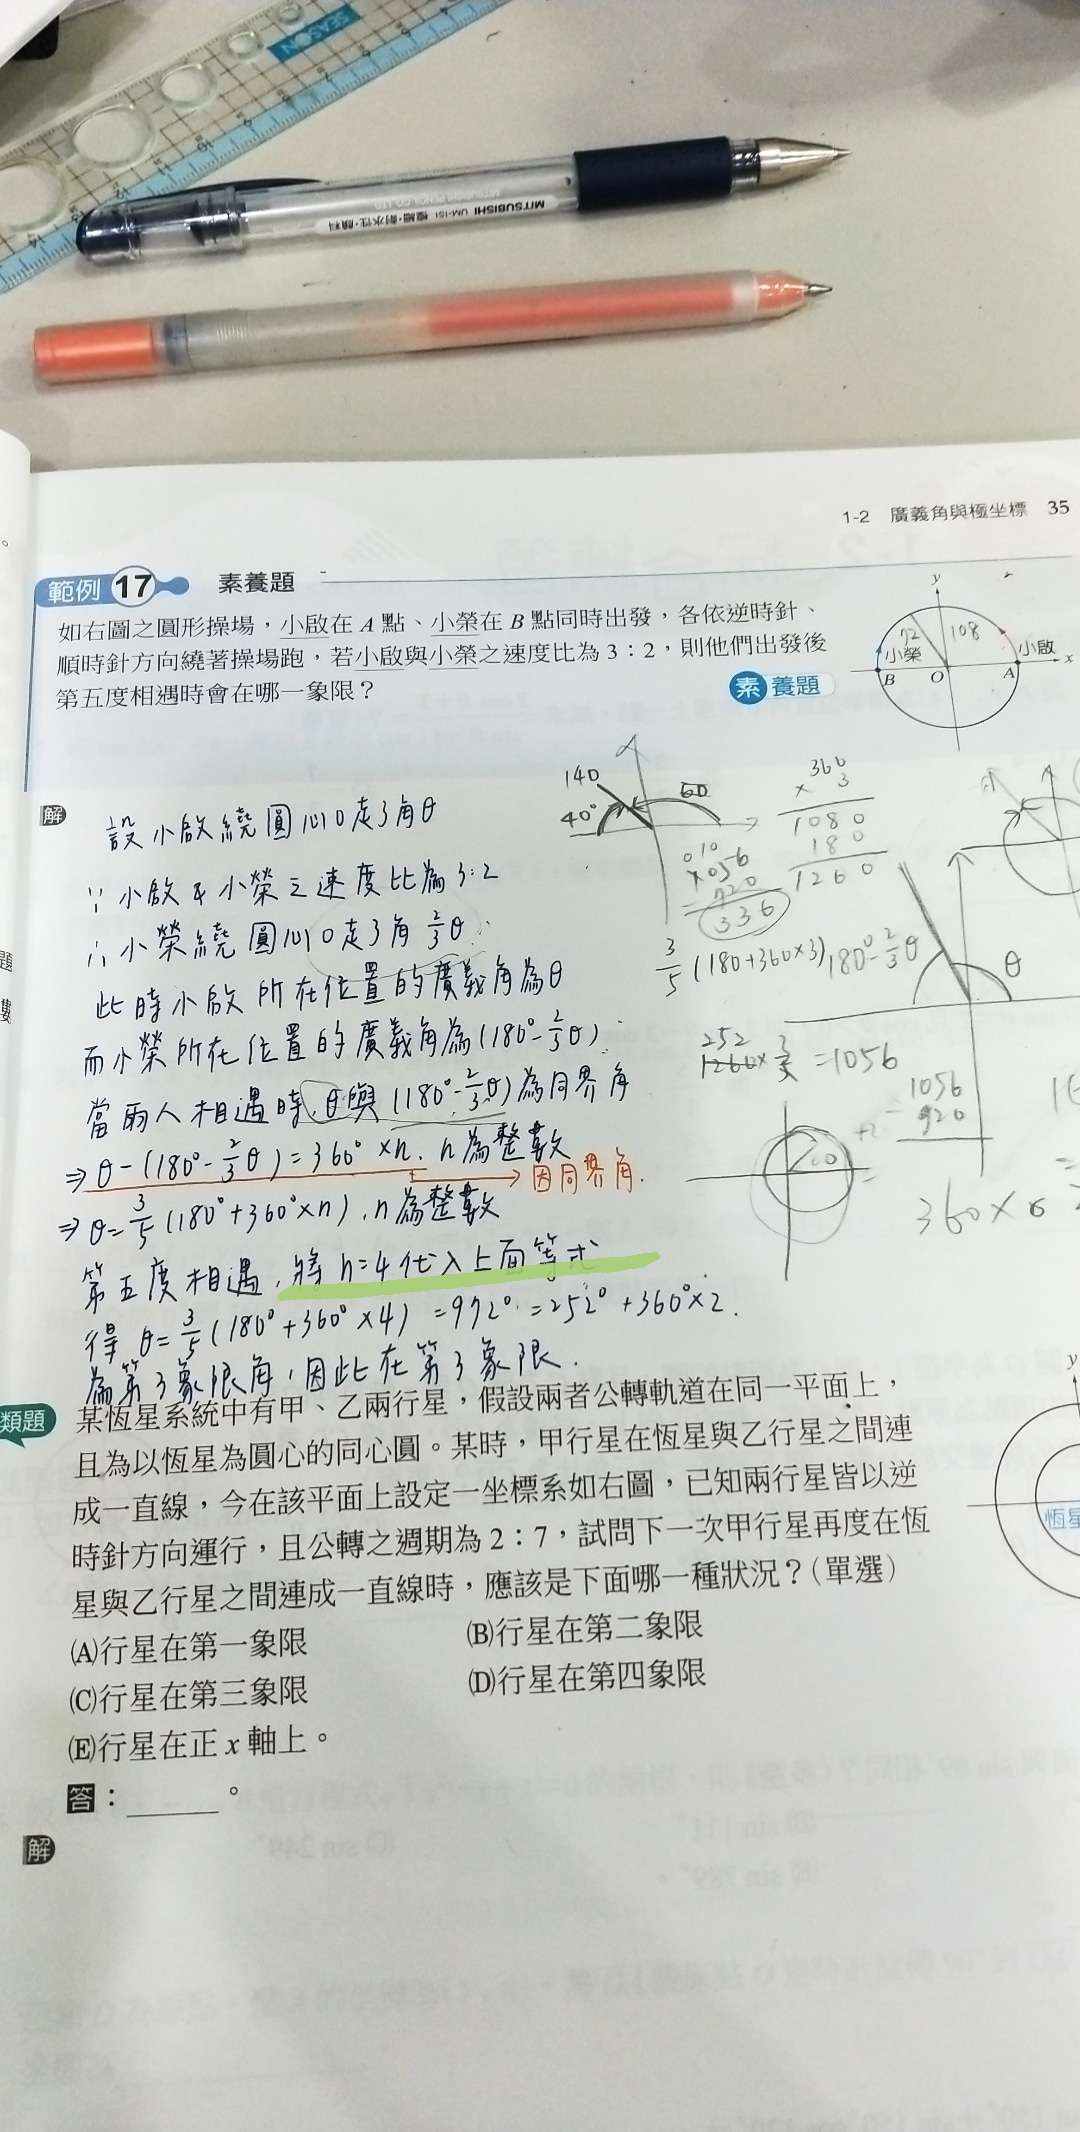 SEASON
MITSUBISHI UM-151 極細・耐水性・顔料
1-2 廣義角與極坐標 35
範例 17 素養題
如右圖之圓形操場，小啟在 A 點、小榮在 B 點同時出發，各依逆時針、
順時針方向繞著操場跑，若小啟與小榮之速度比為 3：2，則他們出發後
第五度相遇時會在哪一象限？
素養題
y
72
108
小榮
小啟
B
O
A
x
解
設小啟繞圓心O走了角θ
∵小啟&小榮之速度比為3:2
∴小榮繞圓心O走了角2/3θ
此時小啟所在位置的廣義角為θ
而小榮所在位置的廣義角為(180°-2/3θ)
當兩人相遇時,θ與(180°-2/3θ)為同界角
⇒θ-(180°-2/3θ)=360°×n. n為整數
→因同界角.
⇒θ=3/5(180°+360°×n),n為整數
第五度相遇,將n=4代入上面等式
得 θ=3/5(180°+360°×4)=972°=252°+360°×2.
為第3象限角,因此在第3象限.
140
40°
360
× 3
1080
180
1260
336
3/5(180+360×3)
180°-2/3θ
θ
252
=1056
1056
920
類題
某恆星系統中有甲、乙兩行星，假設兩者公轉軌道在同一平面上，
且為以恆星為圓心的同心圓。某時，甲行星在恆星與乙行星之間連
成一直線，今在該平面上設定一坐標系如右圖，已知兩行星皆以逆
時針方向運行，且公轉之週期為 2：7，試問下一次甲行星再度在恆
星與乙行星之間連成一直線時，應該是下面哪一種狀況？(單選)
(A)行星在第一象限
(B)行星在第二象限
(C)行星在第三象限
(D)行星在第四象限
(E)行星在正 x 軸上。
答：______。
y
恆星
解